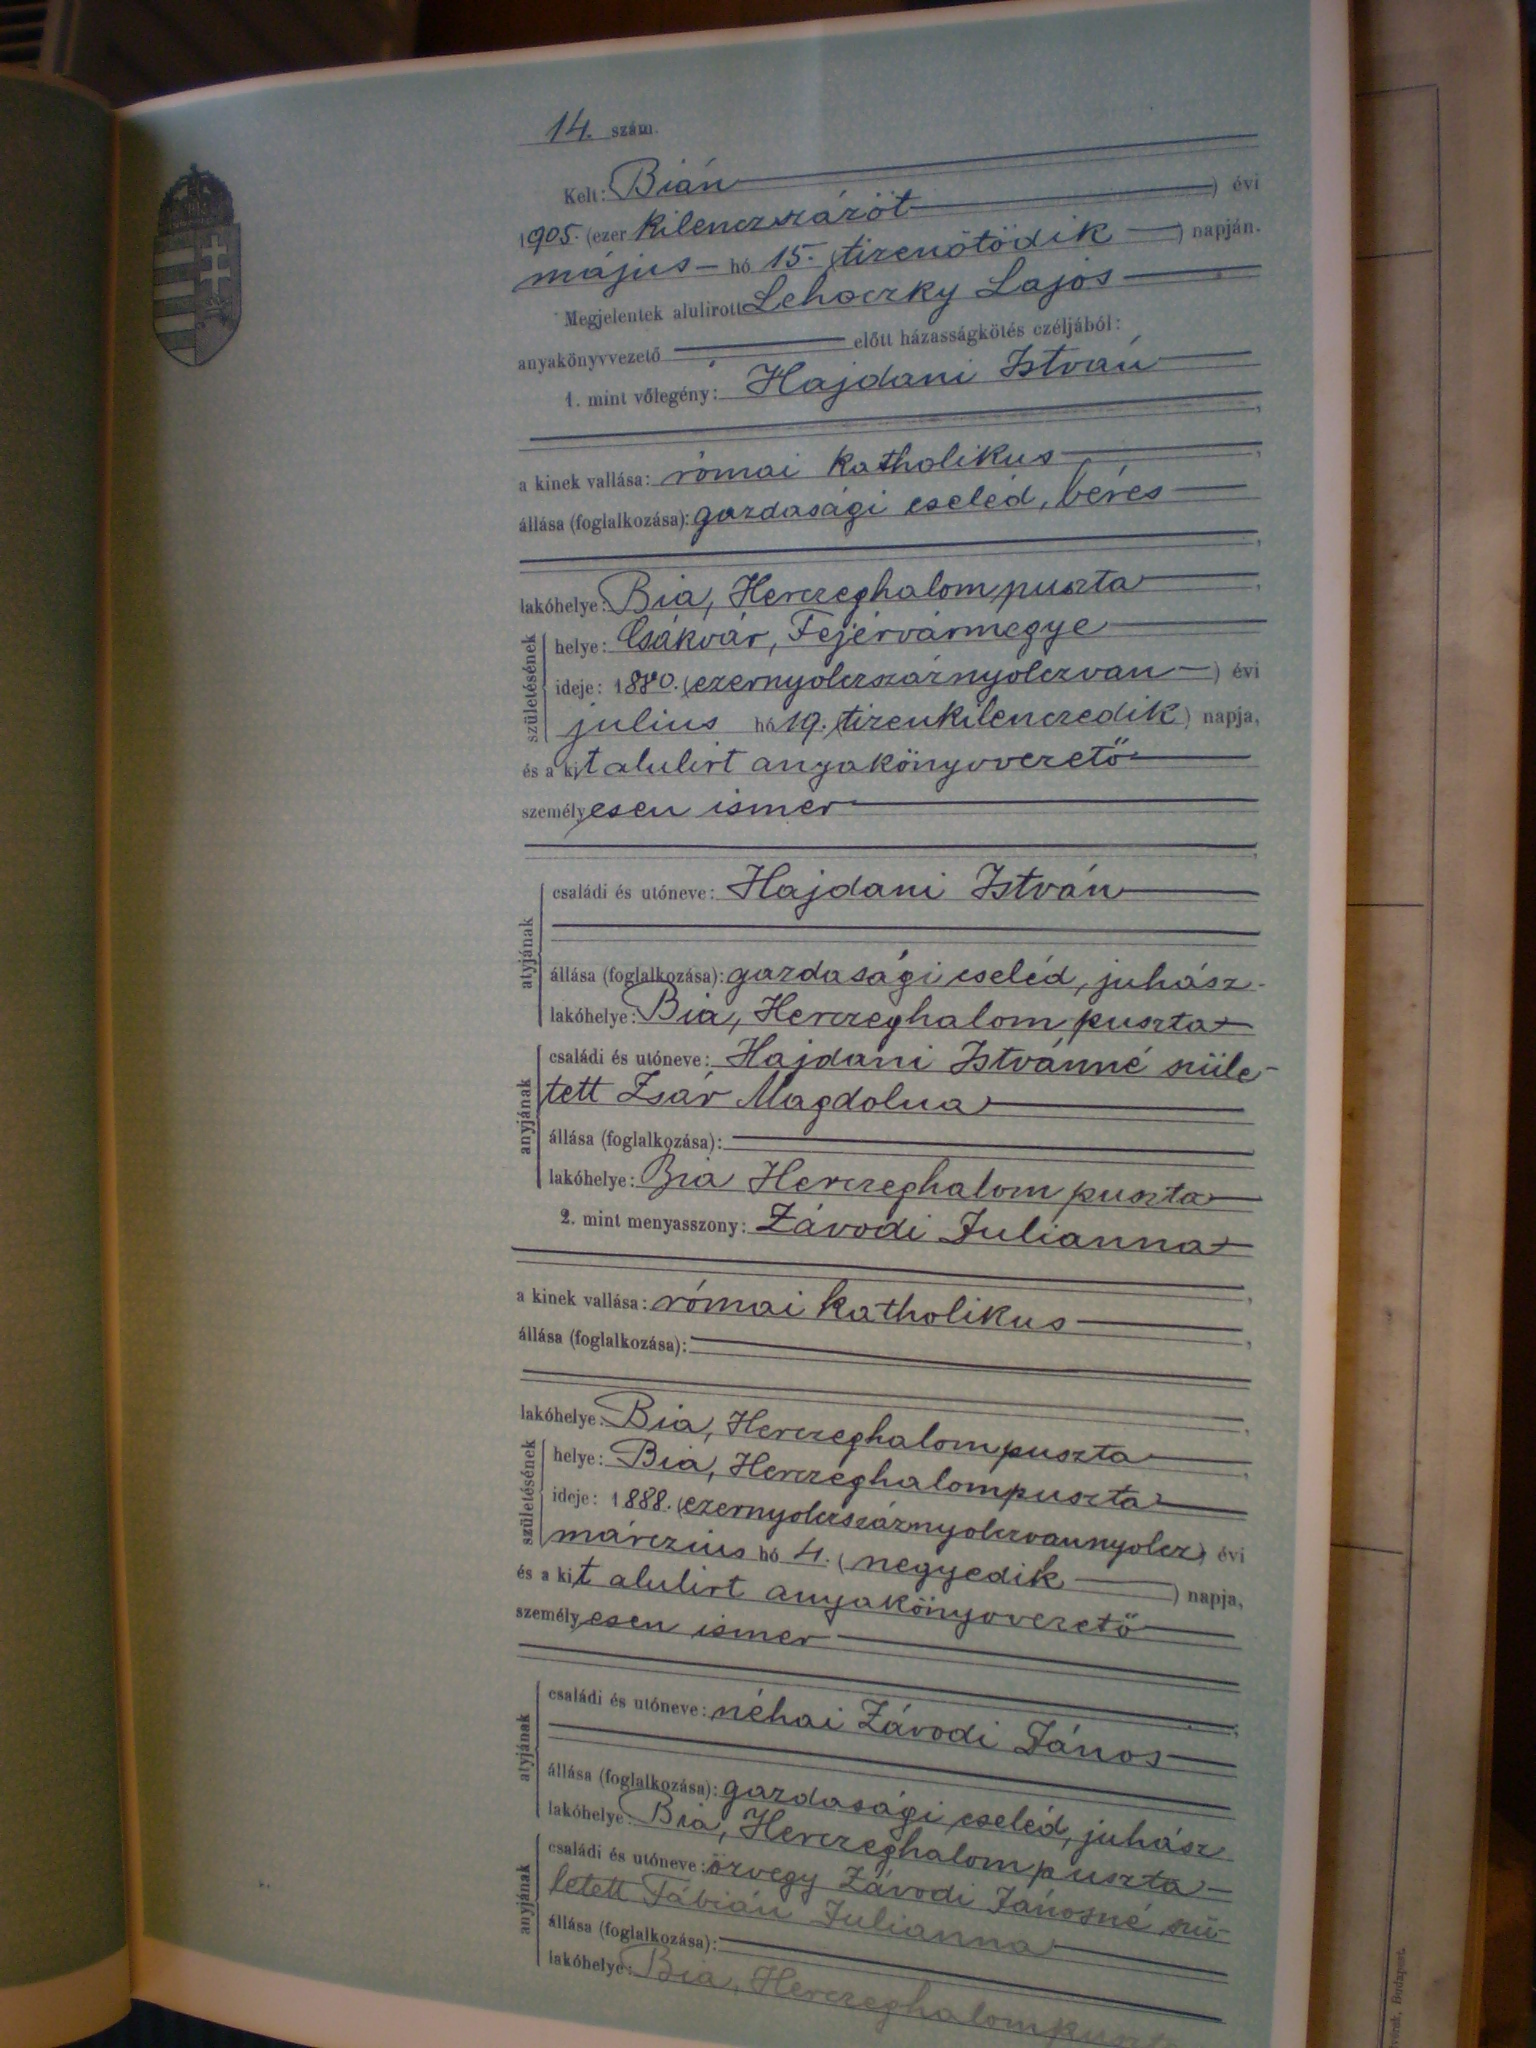 14. szám.
Kelt: Bián
1905. (ezer kilenczszázöt) évi
május hó 15. (tizenötödik) napján.
Megjelentek alulirott Lehoczky Lajos
anyakönyvvezető előtt házasságkötés czéljából:
1. mint vőlegény: Hajdani István
a kinek vallása: római katholikus
állása (foglalkozása): gazdasági cseléd, béres
lakóhelye: Bia, Herczeghalompuszta
születésének
helye: Csákvár, Fejérvármegye
ideje: 1880. (ezernyolczszáznyolczvan) évi
julius hó 19. (tizenkilenczedik) napja,
és a kit alulirt anyakönyvvezető
személyesen ismer
atyjának
családi és utóneve: Hajdani István
állása (foglalkozása): gazdasági cseléd, juhász
lakóhelye: Bia, Herczeghalom puszta
anyjának
családi és utóneve: Hajdani Istvánné szüle-
tett Zsár Magdolna
állása (foglalkozása):
lakóhelye: Bia Herczeghalom puszta
2. mint menyasszony: Závodi Julianna
a kinek vallása: római katholikus
állása (foglalkozása):
lakóhelye: Bia, Herczeghalompuszta
születésének
helye: Bia, Herczeghalompuszta
ideje: 1888. (ezernyolczszáznyolczvannyolcz) évi
márczius hó 4. (negyedik) napja,
és a kit alulirt anyakönyvvezető
személyesen ismer
atyjának
családi és utóneve: néhai Závodi János
állása (foglalkozása): gazdasági cseléd, juhász
lakóhelye: Bia, Herczeghalompuszta
anyjának
családi és utóneve: özvegy Závodi Jánosné szü-
letett Fábián Julianna
állása (foglalkozása):
lakóhelye: Bia, Herczeghalompuszta
Budapest.